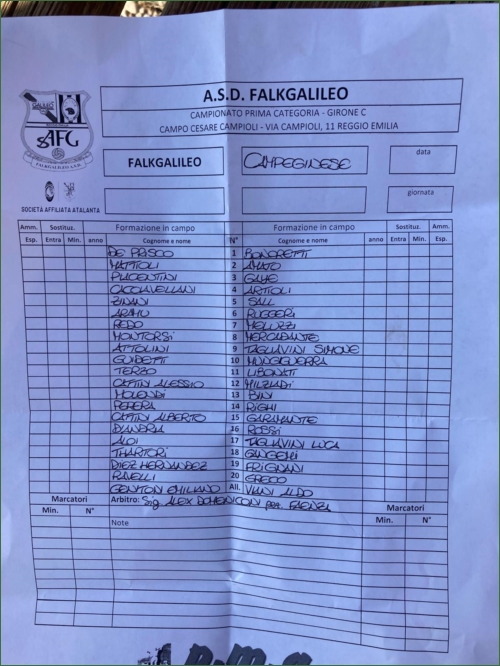 A.S.D. FALKGALILEO
CAMPIONATO PRIMA CATEGORIA - GIRONE C
CAMPO CESARE CAMPIOLI - VIA CAMPIOLI, 11 REGGIO EMILIA
GALILEO
AFG
FALKGALILEO A.S.D.
SOCIETÀ AFFILIATA ATALANTA
FALKGALILEO CAMPEGINESE data
giornata
Amm. Sostituz. Formazione in campo Formazione in campo Sostituz. Amm.
Esp. Entra Min. anno Cognome e nome N° Cognome e nome anno Entra Min. Esp.
DE PRISCO 1 BONORETTI
MATTIOLI 2 AMATO
PIACENTINI 3 GAYE
CACCIAVELLANI 4 ARTIOLI
ZINANI 5 SALL
6 RUGGERI
REDO 7 MELUZZI
MONTORSI 8
ATTOLINI 9 TAGLIAVINI SIMONE
GUIDETTI 10
TERZO 11 LIBONATI
CAPTINI ALESSIO 12
13 BINI
14 RIGHI
CAPTINI ALBERTO 15 GARAMANTE
D'ANDRIA 16 ROSSI
ALOI 17 TAGLIAVINI LUCA
18
DIEZ HERNANDEZ 19 FRIGNANI
RAVELLI 20 GRECO
EMILIANO All. VIANI ALDO
Marcatori Arbitro: Sig. ALEX DOMENICONI FAENZA Marcatori
Min. N° Note Min. N°